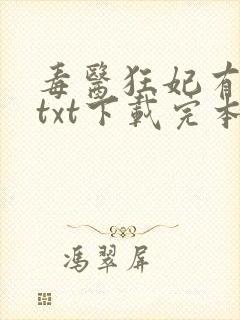 毒醫狂妃有
txt下載完本
馮翠屏